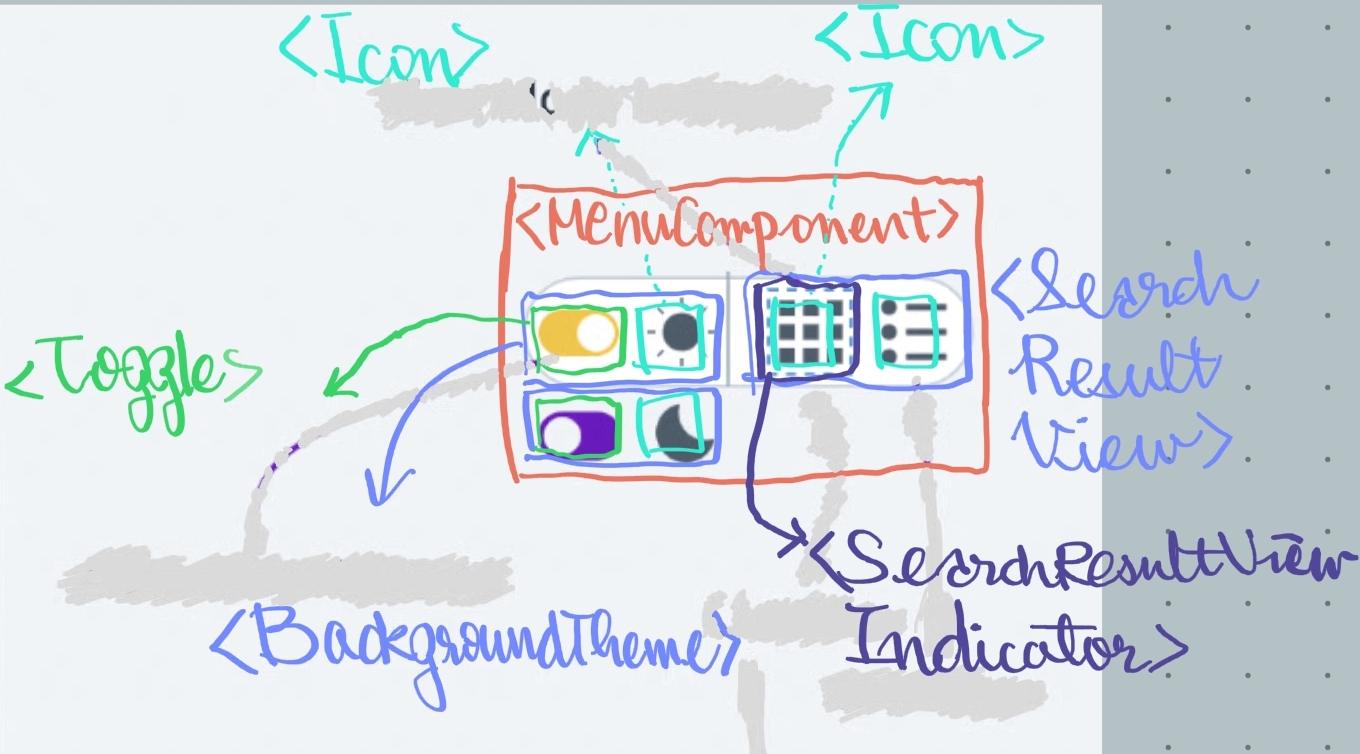 <Icon>
<Icon>
<MenuComponent>
<Search
Result
View>
<Toggle>
<SearchResultView
Indicator>
<BackgroundTheme>